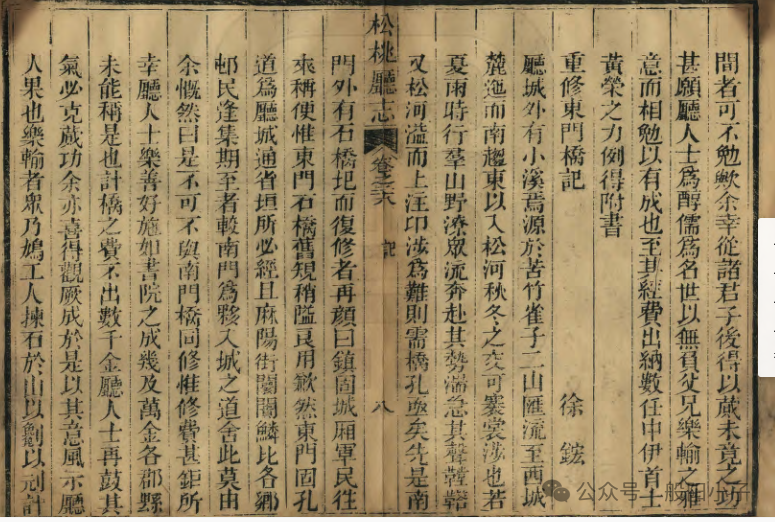 問者可不勉歟余幸從諸君子後得以蕆未竟之功
甚願廳人士爲醇儒爲名世以無負從兄樂輸之雅
意而相勉以有成也至其經費出納數任中伊首士
黃榮之力例得附書
重修東門橋記 徐鋐
廳城外有小溪焉源於苦竹雀子二山匯流至西城
麓迤而南趨東以入松河秋冬之交可褰裳涉也若
夏雨時行羣山野潦眾流奔赴其勢湍急其聲鞺鞳
又松河溢而上注卬涉爲難則需橋孔亟矣先是南
松桃廳志 卷之 記 八
門外有石橋圯而復修者再顏曰鎮固城廂軍民往
來稱便惟東門石橋舊規稍隘良用歉然東門固孔
道爲廳城通省垣所必經且麻陽街闤闠鱗比各鄉
邨民逢集期至者較南門爲夥入城之道舍此莫由
余慨然曰是不可不與南門橋同修惟修費甚鉅所
幸廳人士樂善好施如書院之成幾及萬金各郡縣
未能稱是也計橋之費不出數千金廳人士再鼓其
氣必克蕆功余亦喜得觀厥成於是以其意風示廳
人果也樂輸者眾乃鳩工人揀石於山以劖以刓計
公众号